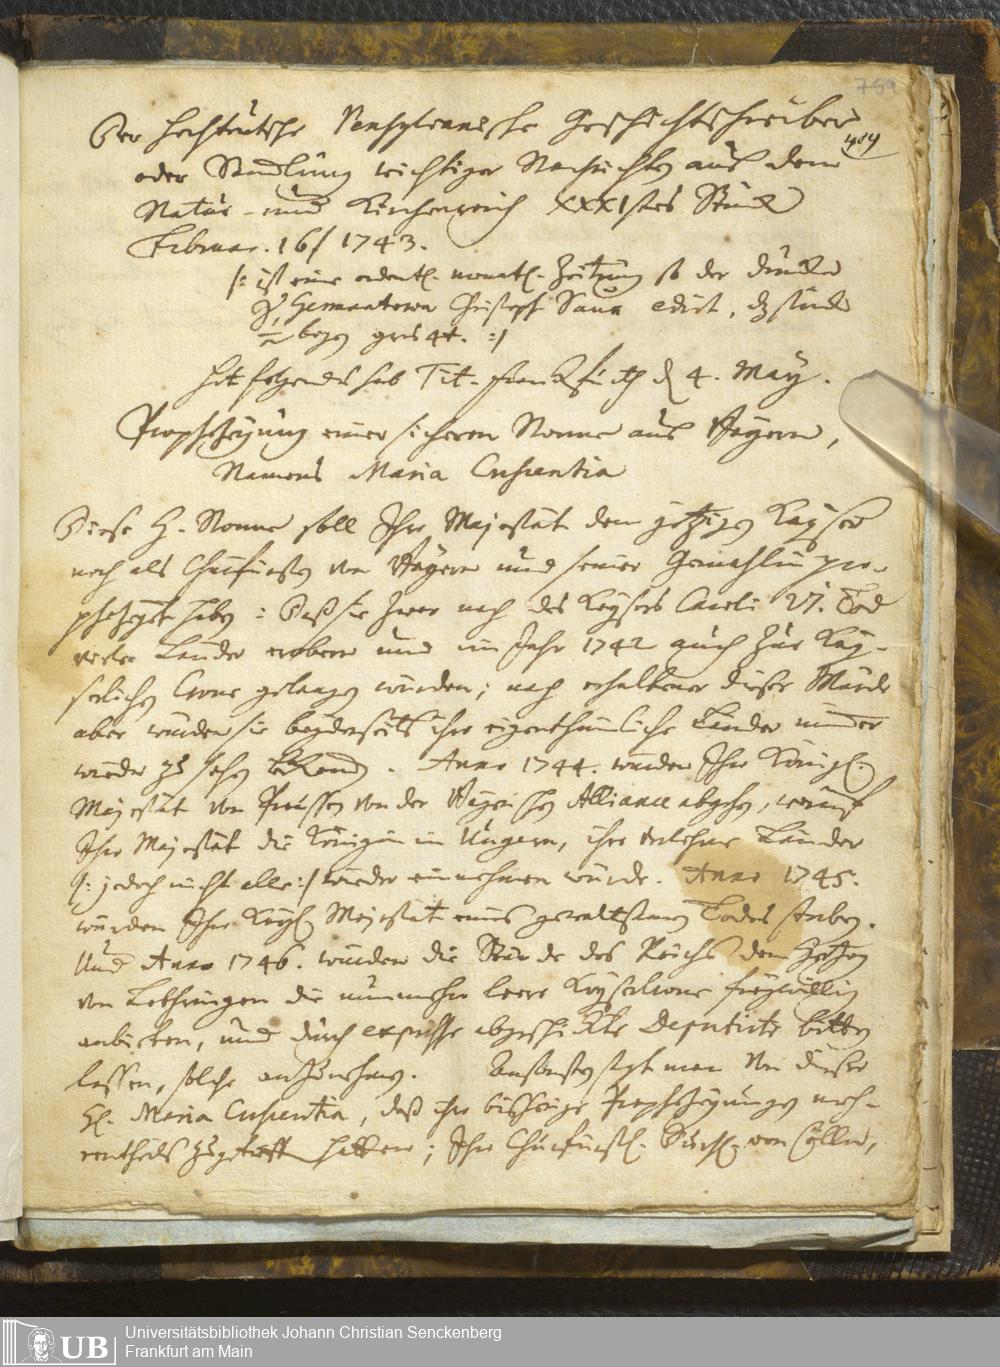 799
Der Hochteutsche Pensylvanische Geschichtschreiber
404
oder Samlung wichtiger Nachrichten aus dem
Natur- und Kirchenreich XXXIstes Stück
Februar. 16/ 1743.
/: ist eine ordentl. monatl. Zeitung so der drucker
zu Germantown Christoph Saur edirt, dz stück
:/
hat folgendes sub Tit. Franckfurth d. 4. May.
Prophezeyung einer sicheren Nonne aus Bayern,
Namens Maria Crescentia
Diese H. Nonne soll Ihro Majestät dem jetzigen Kayser
noch als Churfürsten von Bayern und seiner Gemahlin pro-
phezeyt haben: Daß sie zwar nach des Keysers Caroli VI. Tod
viele Länder erobern und im Jahr 1742 auch zur Kay-
serlichen Crone gelangen würden; nach erhaltener dieser Würde
aber würden sie beyderseits ihre eigenthümliche Länder nimmer
wieder zu sehen bekommen. Anno 1744. würden Ihro Königl.
Majestät von Preussen von der Bayrischen Alliance abgehen, worauf
Ihro Majestät die Königin in Ungern, ihre verlohrne Länder
/: jedoch nicht alle :/ wieder einnehmen würde. Anno 1745.
würden Ihro Kayl. Majestät eines gewaltsamen Todes sterben.
Und Anno 1746. würden die Stände des Reichs dem Herzog
von Lothringen die nunmehro leere Kayserkrone freywillig
anbieten, und durch expresse abgeschickte Deputirte bitten
lassen, solche anzunehmen. Ansonsten sagt man von dieser
Hl. Maria Crescentia, daß ihre bisherige Prophezeyungen meh-
rentheils zugetroffen hätten; Ihro Churfürstl. Durchl. von Cölln,
UB
Universitätsbibliothek Johann Christian Senckenberg
Frankfurt am Main